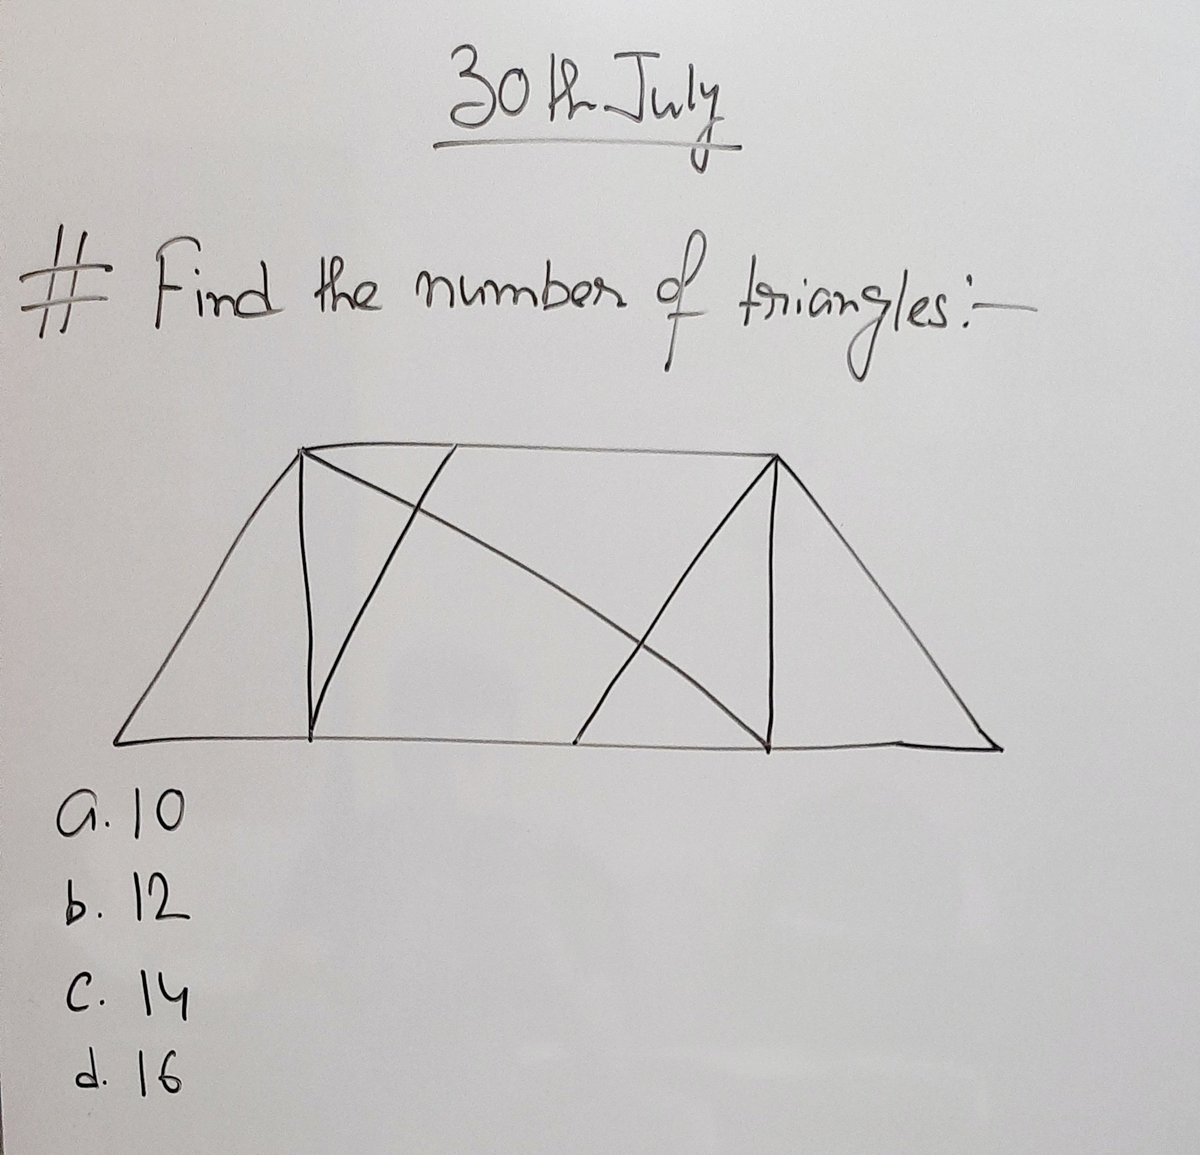 30th July
# Find the number of triangles:-
a. 10
b. 12
c. 14
d. 16